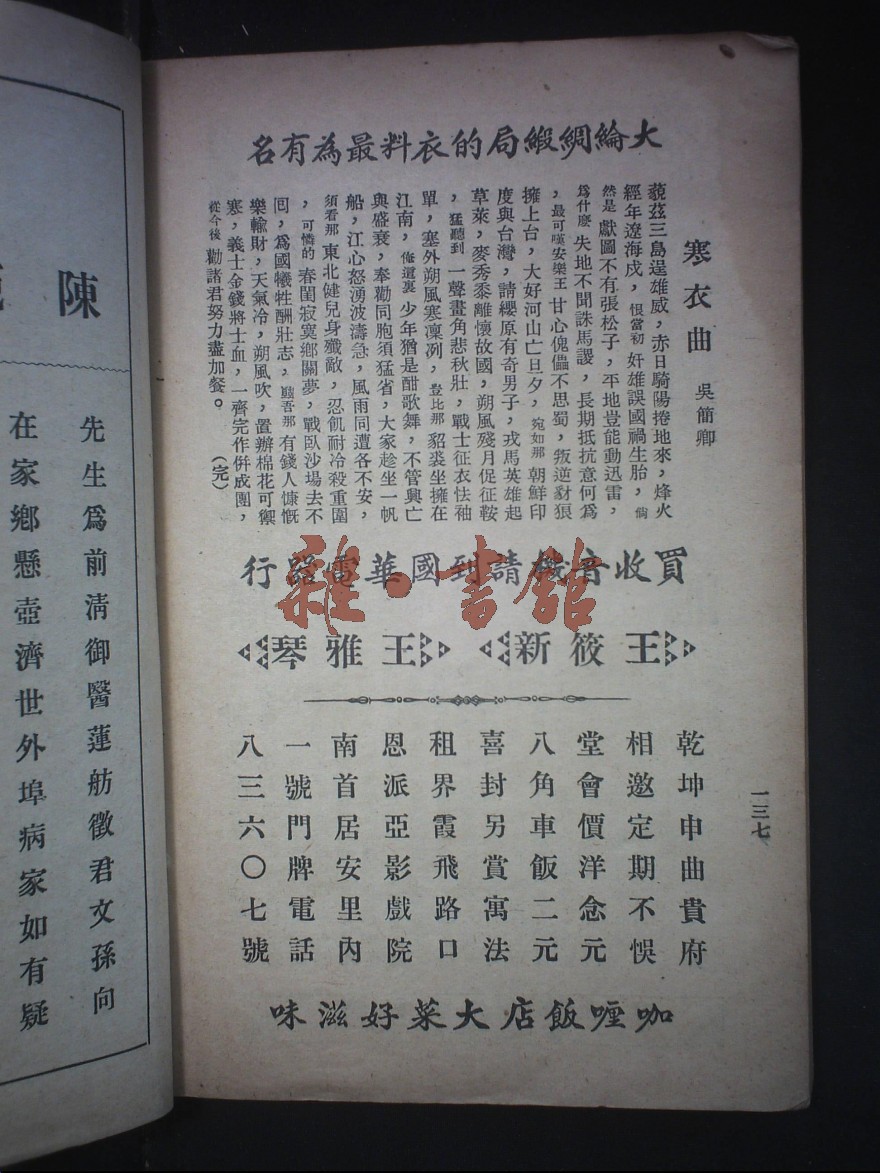 大綸綢緞局的衣料最為有名
寒衣曲　吳簡卿
藐茲三島逞雄威，赤日騎陽捲地來，烽火
經年遼海戍，恨當初 奸雄誤國禍生胎，倘
然是 獻圖不有張松子，平地豈能動迅雷，
爲什麼 失地不聞誅馬謖，長期抵抗意何爲
，最可嘆安樂王 甘心傀儡不思蜀，叛逆豺狼
擁上台，大好河山亡旦夕，宛如那 朝鮮印
度與台灣，請纓原有奇男子，戎馬英雄起
草萊，麥秀黍離懷故國，朔風殘月促征鞍
，猛聽到 一聲畫角悲秋壯，戰士征衣怯袖
單，塞外朔風寒凜冽，豈比那 貂裘坐擁在
江南，俺這裏 少年猶是酣歌舞，不管興亡
與盛衰，奉勸同胞須猛省，大家趁坐一帆
船，江心怒湧波濤急，風雨同遭各不安，
須看那 東北健兒身殲敵，忍飢耐冷殺重圍
，可憐的 春閨寂寞鄉關夢，戰臥沙場去不
回，爲國犧牲酬壯志，聽吾那 有錢人慷慨
樂輸財，天氣冷，朔風吹，置辦棉花可禦
寒，義士金錢將士血，一齊完作倂成團，
從今後 勸諸君努力盡加餐。（完）
買收音機請到國華電器行
王筱新
王雅琴
乾坤申曲貴府
相邀定期不悞
堂會價洋念元
八角車飯二元
喜封另賞寓法
租界霞飛路口
恩派亞影戲院
南首居安里內
一號門牌電話
八三六〇七號
咖喱飯店大菜好滋味
一三七
陳
先生爲前淸御醫蓮舫徵君文孫向
在家鄉懸壺濟世外埠病家如有疑
雜·書館